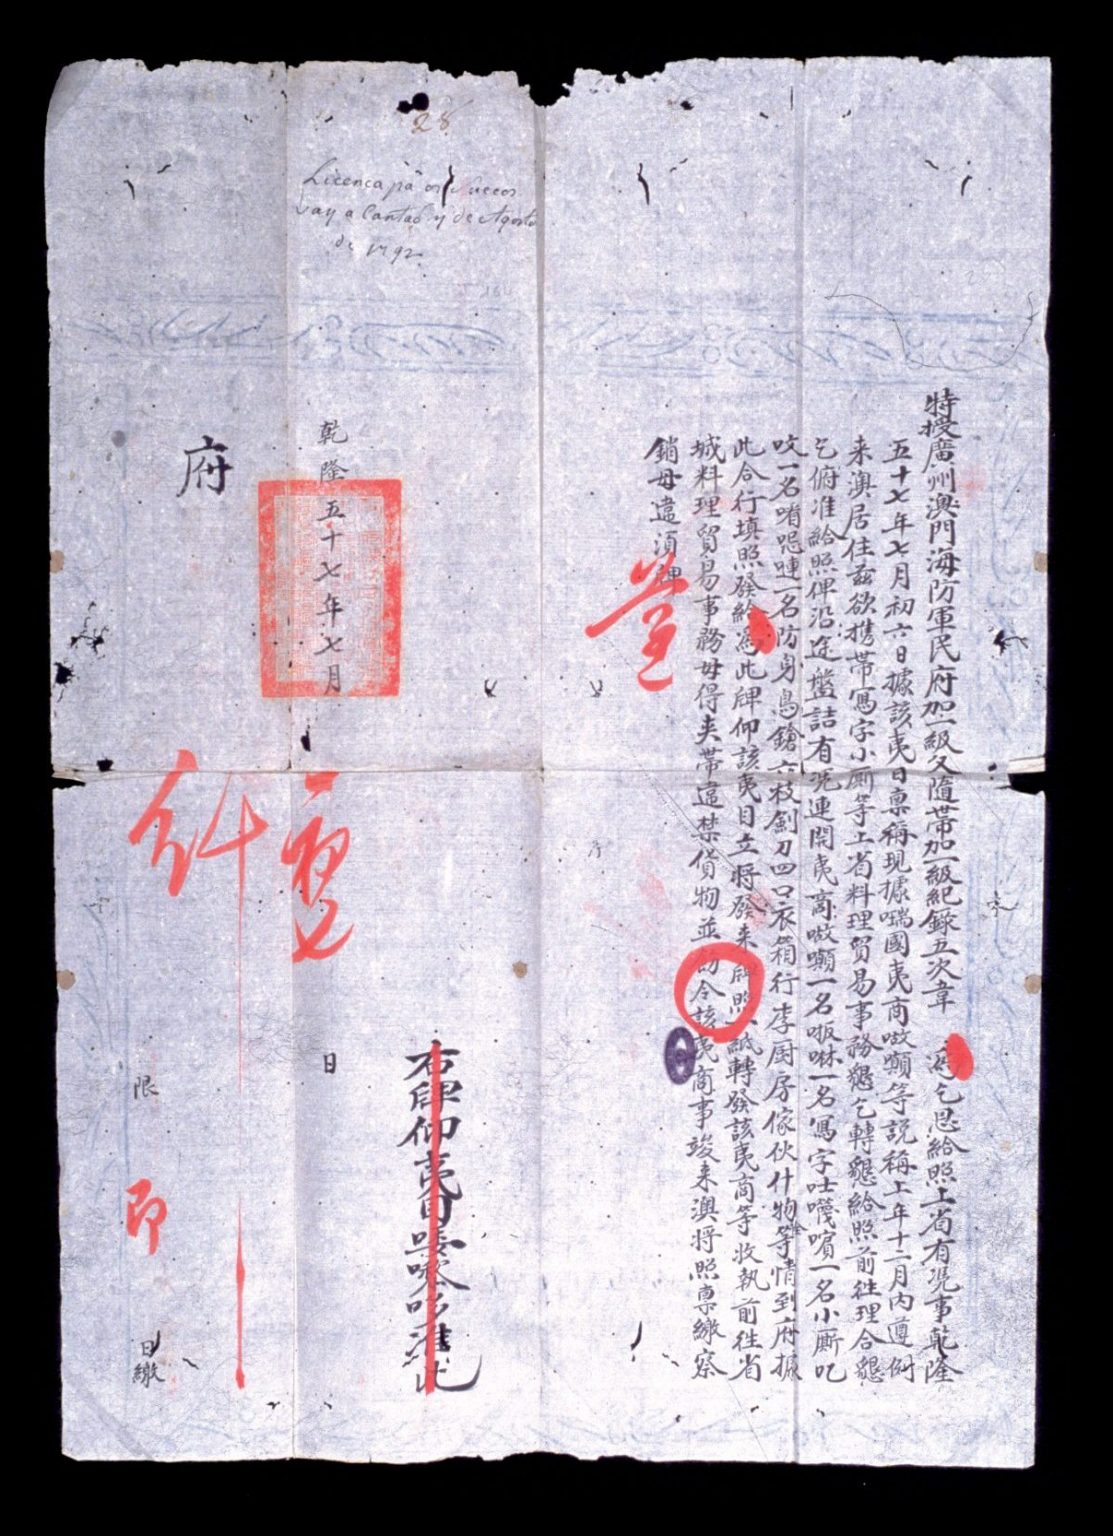 28
Licença pa os Suecos
a Cantaõ de Agosto
de 1792
特授廣州澳門海防軍民府加一級又隨帶加一級紀錄五次韋 為乞恩給照上省有凭事乾隆
五十七年七月初六日據該夷目稟稱現據㗐國夷商㗣㘈等説稱上年十二月內遵例
来澳居住兹欲携帶寫字小厮等上省料理貿易事務懇乞轉懇給照前徃理合懇
乞俯准給照俾沿途盤詰有凭連開夷商㗣㘈一名 一名寫字 一名小厮
一名 一名防身鳥鎗六枝劍刀四口衣箱行李厨房傢伙什物等情到府據
此合行填照發給為此牌仰該夷目立將發来牌照一紙轉發該夷商等收執前徃省
城料理貿易事務毋得夹帶違禁貨物並飭令該夷商事竣来澳將照稟繳察
銷毋違須牌
右牌仰夷目㗎嚟哆准此
乾隆五十七年七月 日
府
限 日繳